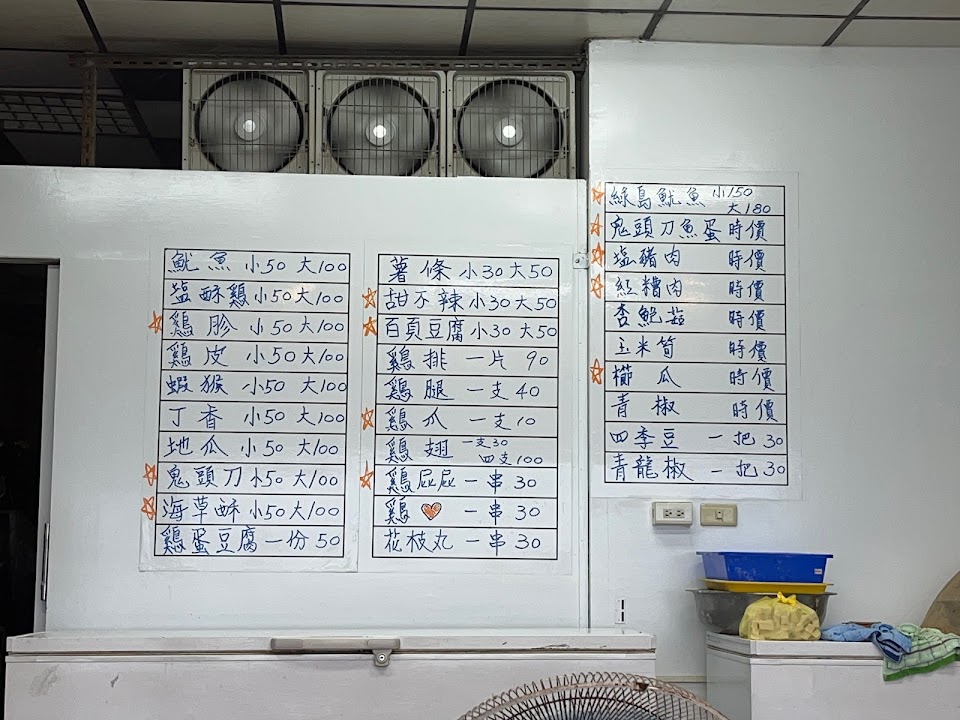 魷魚 小50 大100
塩酥鷄 小50 大100
鷄胗 小50 大100
鷄皮 小50 大100
蝦猴 小50 大100
丁香 小50 大100
地瓜 小50 大100
鬼頭刀 小50 大100
海草酥 小50 大100
鷄蛋豆腐 一份 50
薯條 小30 大50
甜不辣 小30 大50
百頁豆腐 小30 大50
鷄排 一片 90
鷄腿 一支 40
鷄爪 一支 10
鷄翅 一支30
四支100
鷄屁屁 一串 30
鷄 一串 30
花枝丸 一串 30
綠島魷魚 小150
大180
鬼頭刀魚蛋 時價
塩豬肉 時價
紅糟肉 時價
杏鮑菇 時價
玉米筍 時價
櫛瓜 時價
青椒 時價
四季豆 一把 30
青龍椒 一把 30